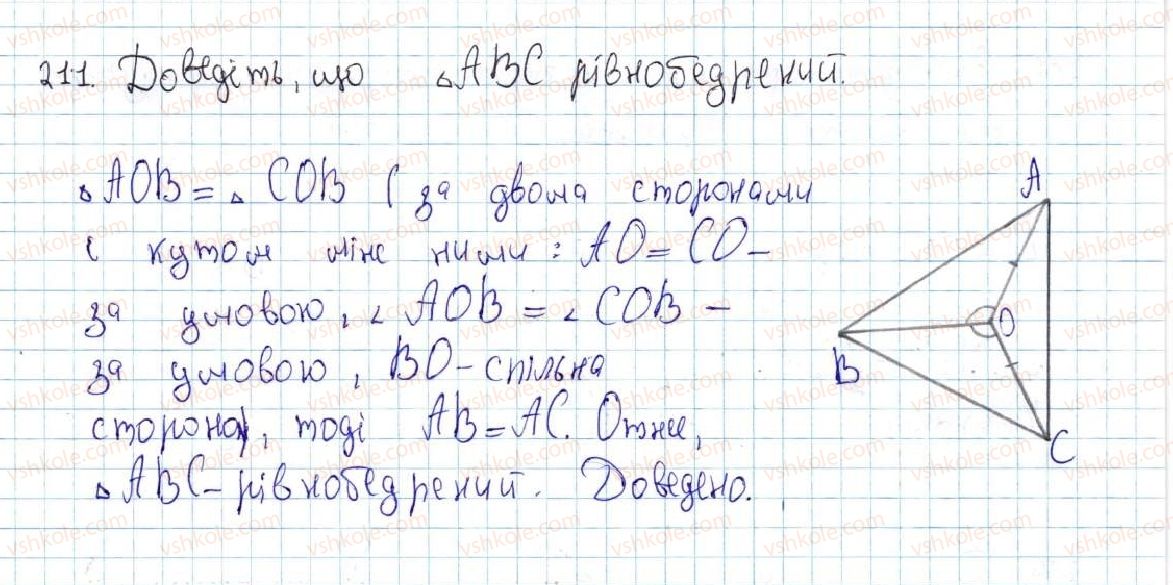 211. Доведіть, що △ABC рівнобедрений.
△AOB = △COB (за двома сторонами
і кутом між ними: AO = CO –
за умовою, ∠AOB = ∠COB –
за умовою, BO – спільна
сторона), тоді AB = AC. Отже,
△ABC – рівнобедрений. Доведено.
A
O
B
C